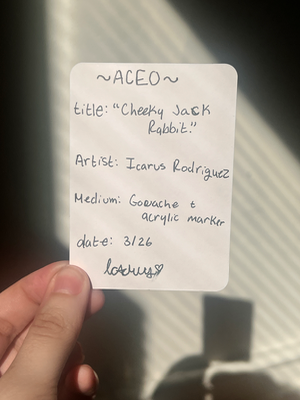 ~ACEO~
title: "Cheeky Jack
Rabbit."
Artist: Icarus Rodriguez
Medium: Gouache &
acrylic marker
date: 3/26